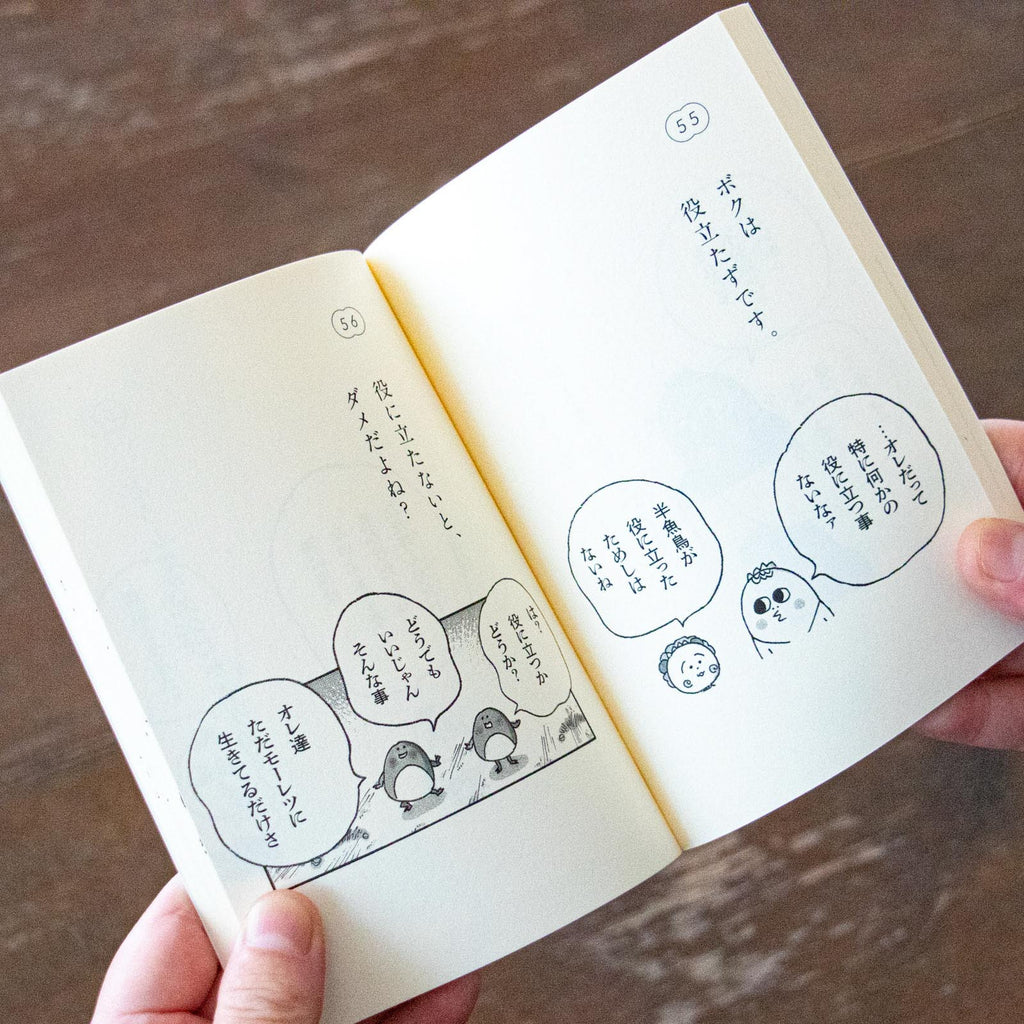 55
ボクは
役立たずです。
…オレだって
特に何かの
役に立つ事
ないなァ
半魚鳥が
役に立った
ためしは
ないね
56
役に立たないと、
ダメだよね?
は?
役に立つか
どうか?
どうでも
いいじゃん
そんな事
オレ達
ただモーレツに
生きてるだけさ